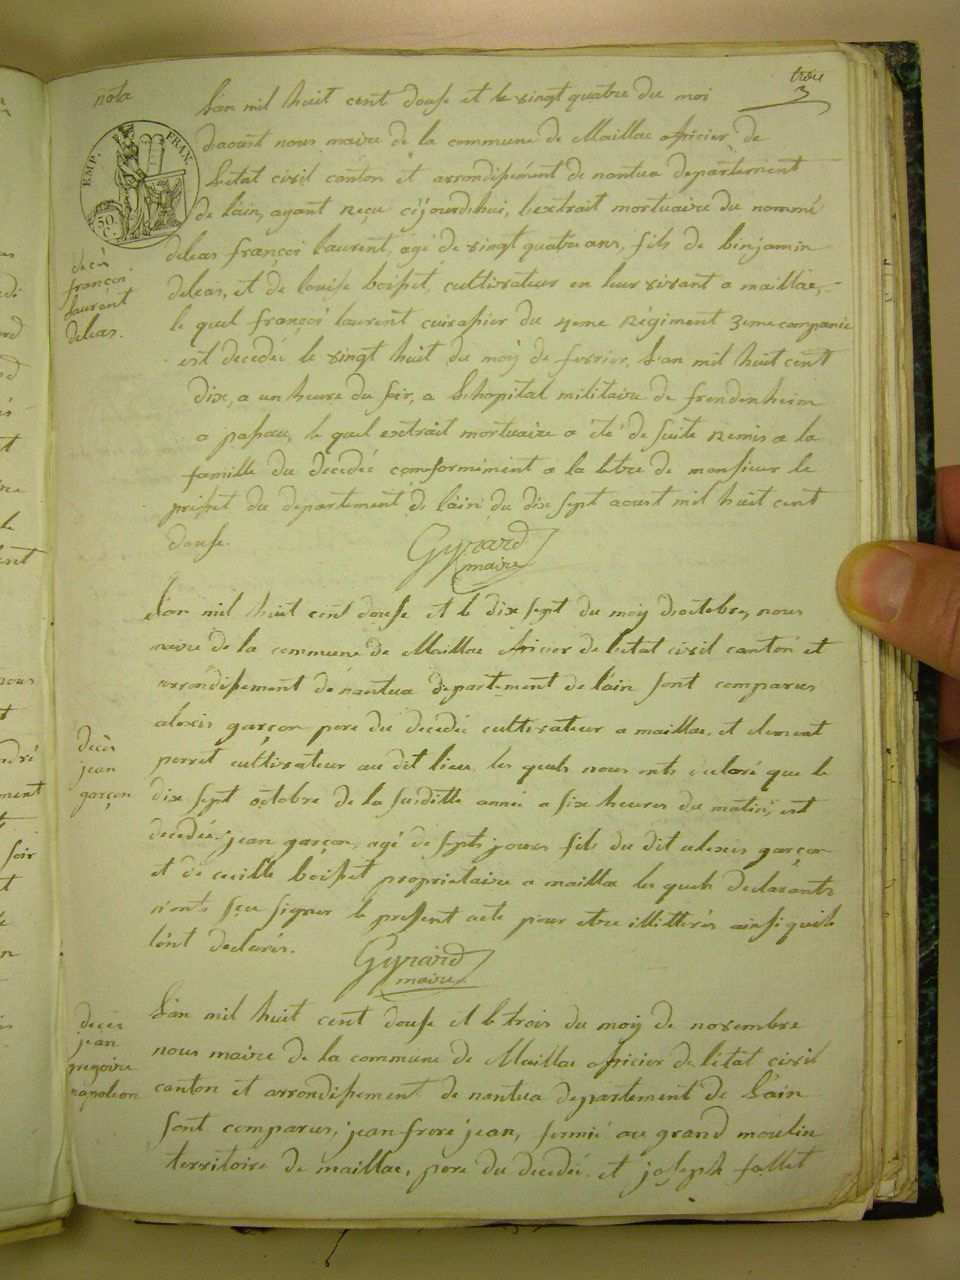 trois
3
nota
EMP. FRAN.
50 C.
décès
françoi
laurent
deléas.
L'an mil huit cent douse et le vingt quatre du moi
daoust nous maire de la commune de Maillac officier de
Letat civil canton et arrondissement de nantua departement
de lain, ayant Reçu cijourdhui, lextrait mortuaire du nommé
deléas françoi laurent, agé de vingt quatre ans, fils de benjamin
deléas, et de louise boisset, cultivateur en leur vivant a maillac,
le quel françoi laurent cuirassier du 4eme Régiment 3eme companie
est decedée le vingt huit du moij de fevrier, L'an mil huit cent
dix, a un heure du soir, a Lhopital militaire de frendenheim
a passau, le quel extrait mortuaire a été de suite Remis a la
famille du decedée comformément a la letre de monsieur le
prefet du departement de lain du dix sept aoust mil huit cent
douse.
Gyrard
maire
L'an mil huit cent douse et le dix sept du moij doctobre, nous
maire de la commune de Maillac officier de letat civil canton et
arrondissement de nantua departement de lain sont comparus
alexis garçon pere du decedé cultivateur a maillac, et clement
perret cultivateur au dit lieu, les quels nous onts declaré que le
décès
jean
garçon
dix sept octobre de la susditte année a six heures du matin, est
decedée jean garçon, agé de septs jours fils du dit alexis garçon
et de cecille boisset propriétaire a maillac les quels declarants
n'onts sçu signer le present acte pour etre illitterés ainsi quils
lont declarés.
Gyrard
maire
décès
jean
gregoire
napoleon
L'an mil huit cent douse et le trois du moij de novembre
nous maire de la commune de Maillac officier de letat civil
canton et arrondissement de nantua departement de Lain
sont comparus, jean frere jean, fermié au grand moulin
territoire de maillac, pere du decedée, et joseph follet